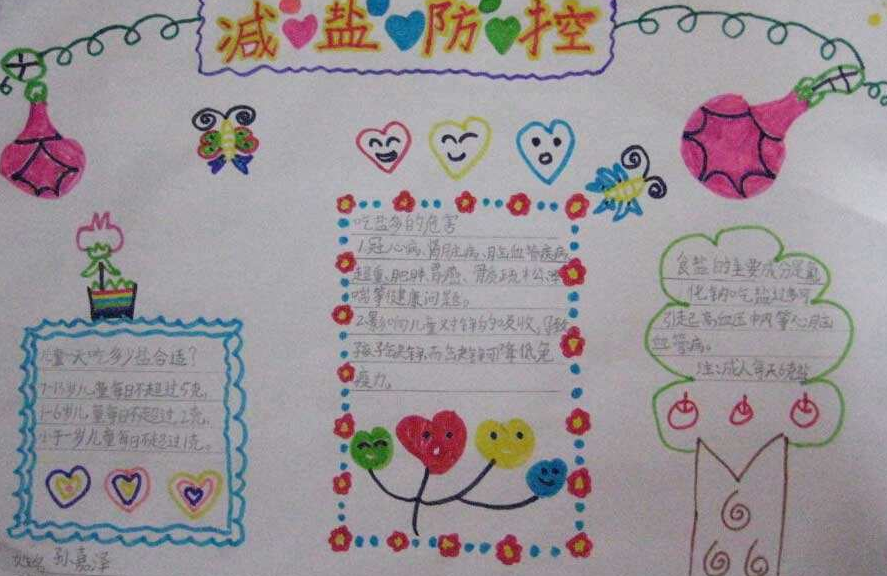 减盐防控
吃盐多的危害
1.冠心病、肾脏病、脑血管疾病、
超重、肥胖、胃癌、骨质疏松、哮
喘等健康问题。
2.影响儿童对锌的吸收,导致
孩子缺锌,而缺锌可降低免
疫力。
儿童一天吃多少盐合适?
7-13岁儿童每日不超过5克。
1-6岁儿童每日不超过2克。
小于一岁儿童每日不超过1克。
食盐的主要成分是氯
化钠吃盐过多可
引起高血压 中风等心脑
血管病。
注:成人每天6克盐
姓名 孙嘉泽